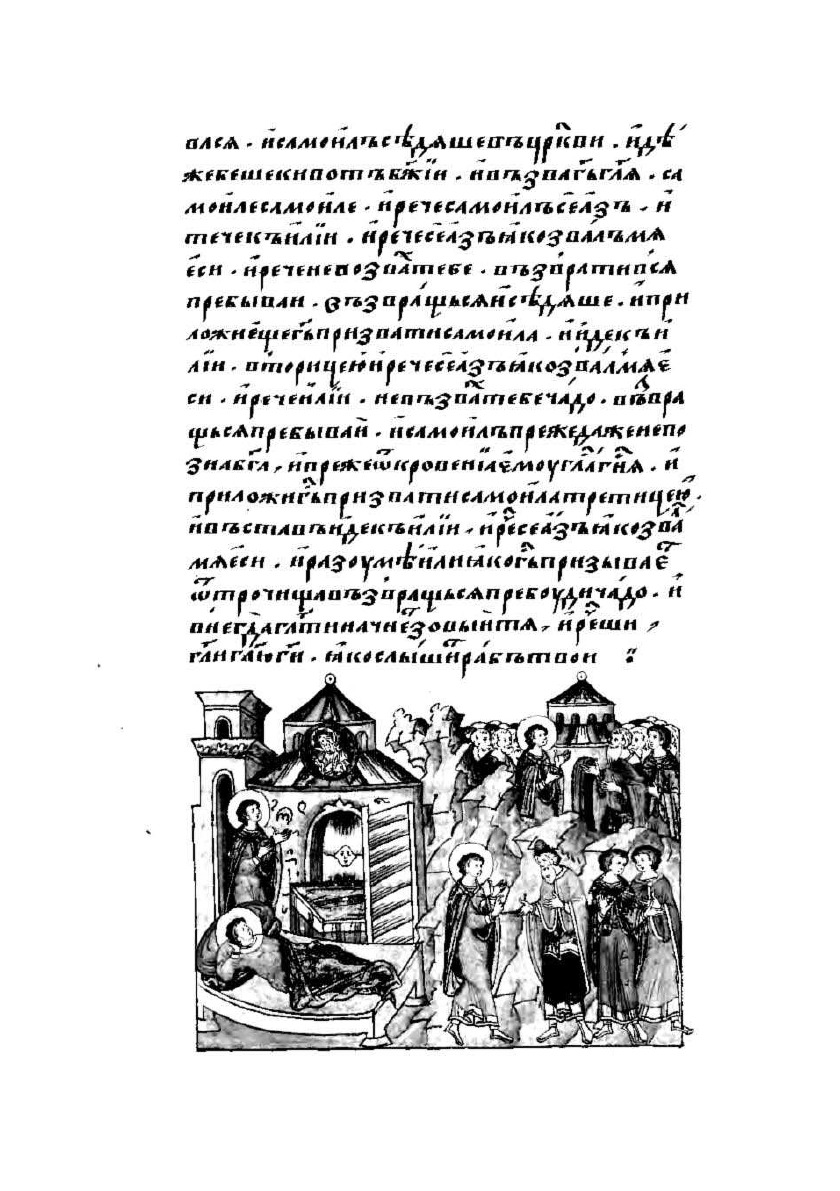 влся · исамоилъсѣдяшевъцр҃кви · идѣ
жебешекивотъбж҃їи · ивъзвагь҃гл҃я · са
моилесамоиле · иречесамоилъсеазъ · и
течекъилїи · иречесеазъꙗкозвалъмя
еси · иреченепозвах҃тебе · възвратився
пребываи · възвращьсяисѣдяше · ипри
ложиещегь҃призватисамоила · иидекъи
лїи · вторицеюиречесеазъꙗкозвалмяе
си · иречеилїи · невъзвах҃тебечадо · въз҃вра
щьсяпребываи · исамоилъпрежедаженепо
знабг҃а, ипрежеѿкровенїаемоугл҃аг҃ня · и
приложигь҃призватисамоилатретицею ·
ивъставъидекъилїи · ир҃ чесеазъꙗкозва҃л
мяеси · иразоумѣилиꙗкогь҃призывает҃
ѿтрочищавъзвращьсяпребоудичадо · и
внегдаагл҃тиначнет҃зовыитя, ир҃ еши,
гл҃иги҃ · ꙗкослышит҃рабътвои